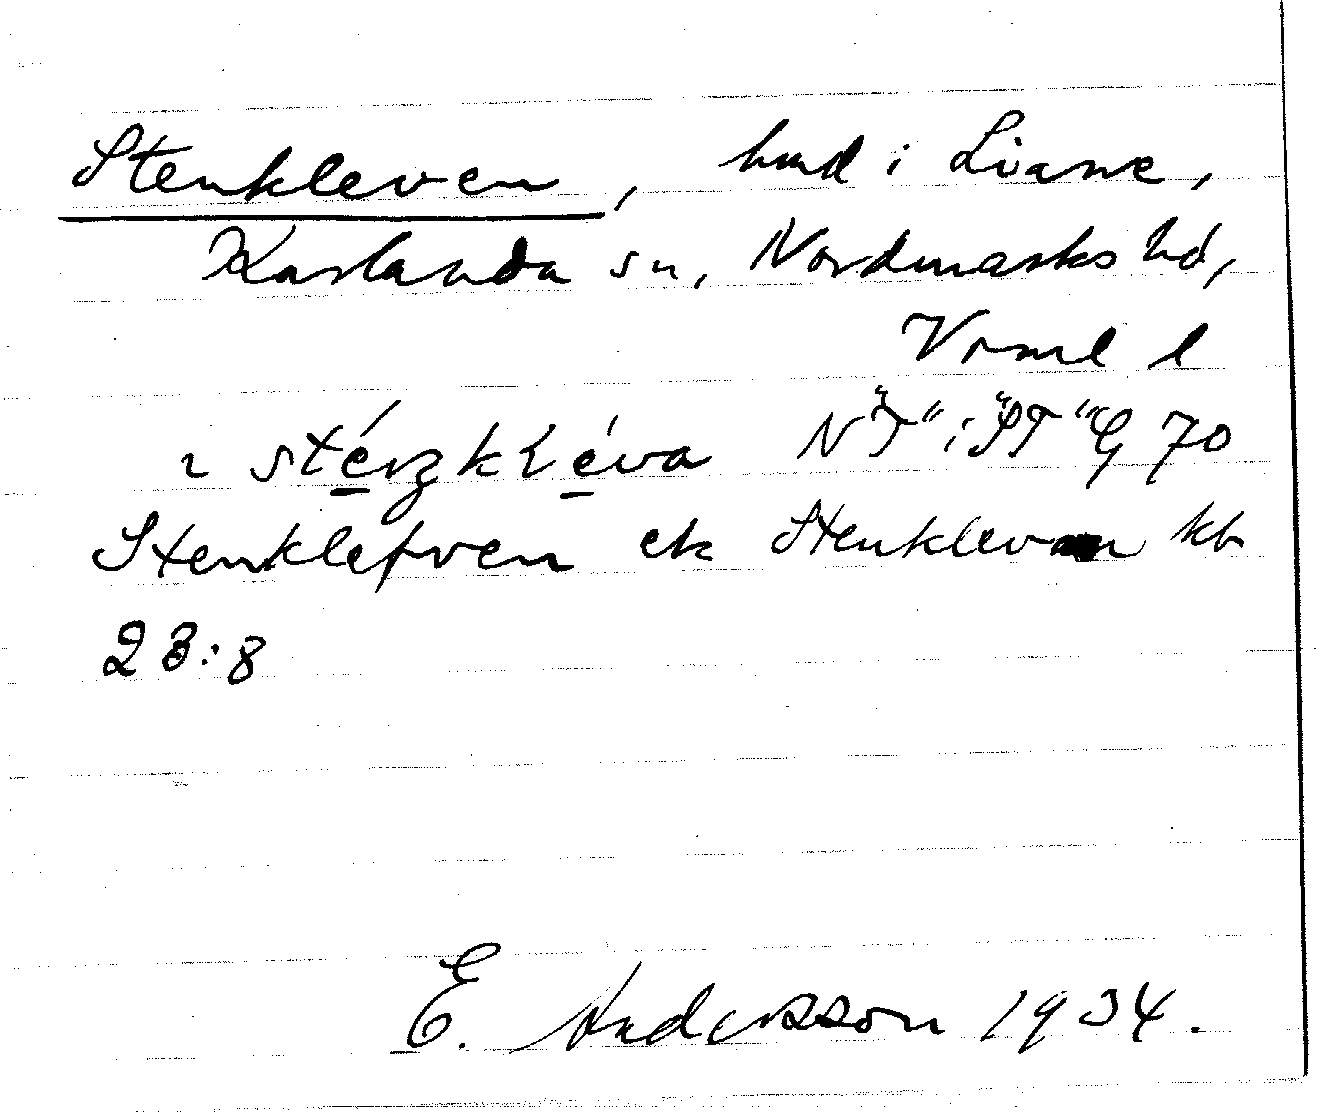 Stenkleven, hmd i Liane,
Karlanda sn, Nordmarks hd,
Vrml l
stéŋkléva N"T" i "PT" G 70
Stenklefven ek Stenkleven kb
23:8
E. Andersson 1934.